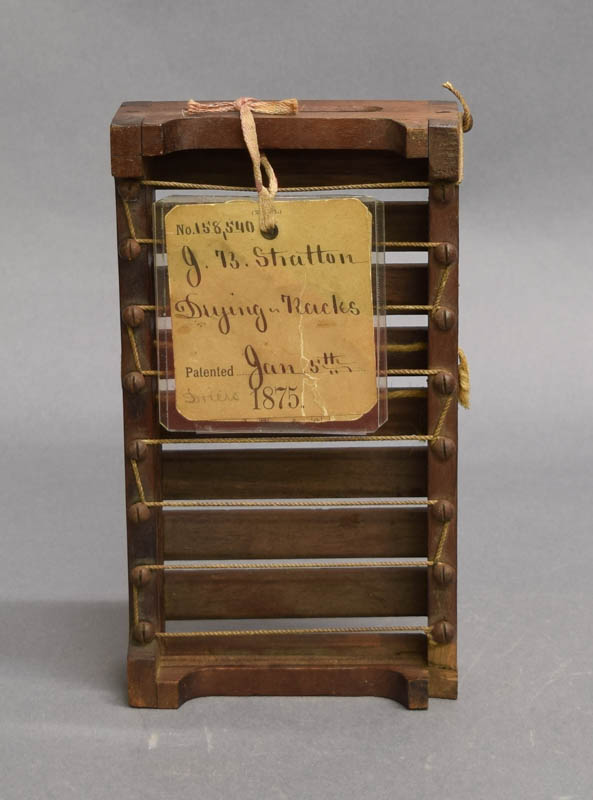 No. 158,540
J. B. Stratton
Drying Racks
Patented Jan 5th
1875.